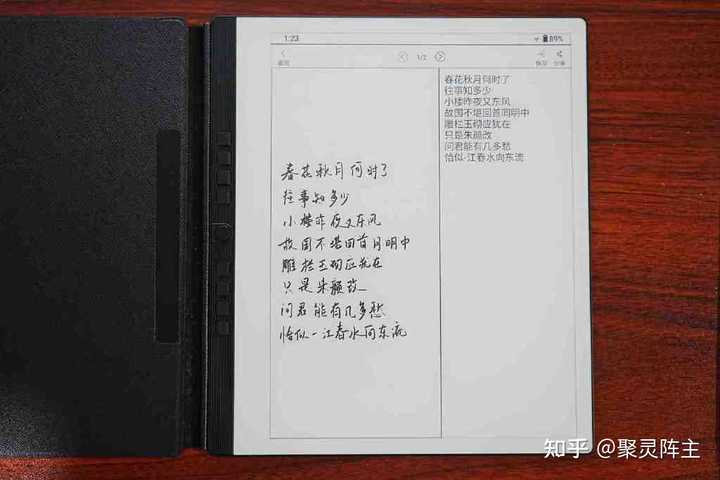 1:23 89%
返回 1/2 恢复 分享
春花秋月何时了
往事知多少
小楼昨夜又东风
故国不堪回首月明中
雕栏玉砌应犹在
只是朱颜改
问君能有几多愁
恰似一江春水向东流
春花秋月何时了
往事知多少
小楼昨夜又东风
故国不堪回首月明中
雕栏玉砌应犹在
只是朱颜改
问君能有几多愁
恰似-江春水向东流
知乎 @聚灵阵主